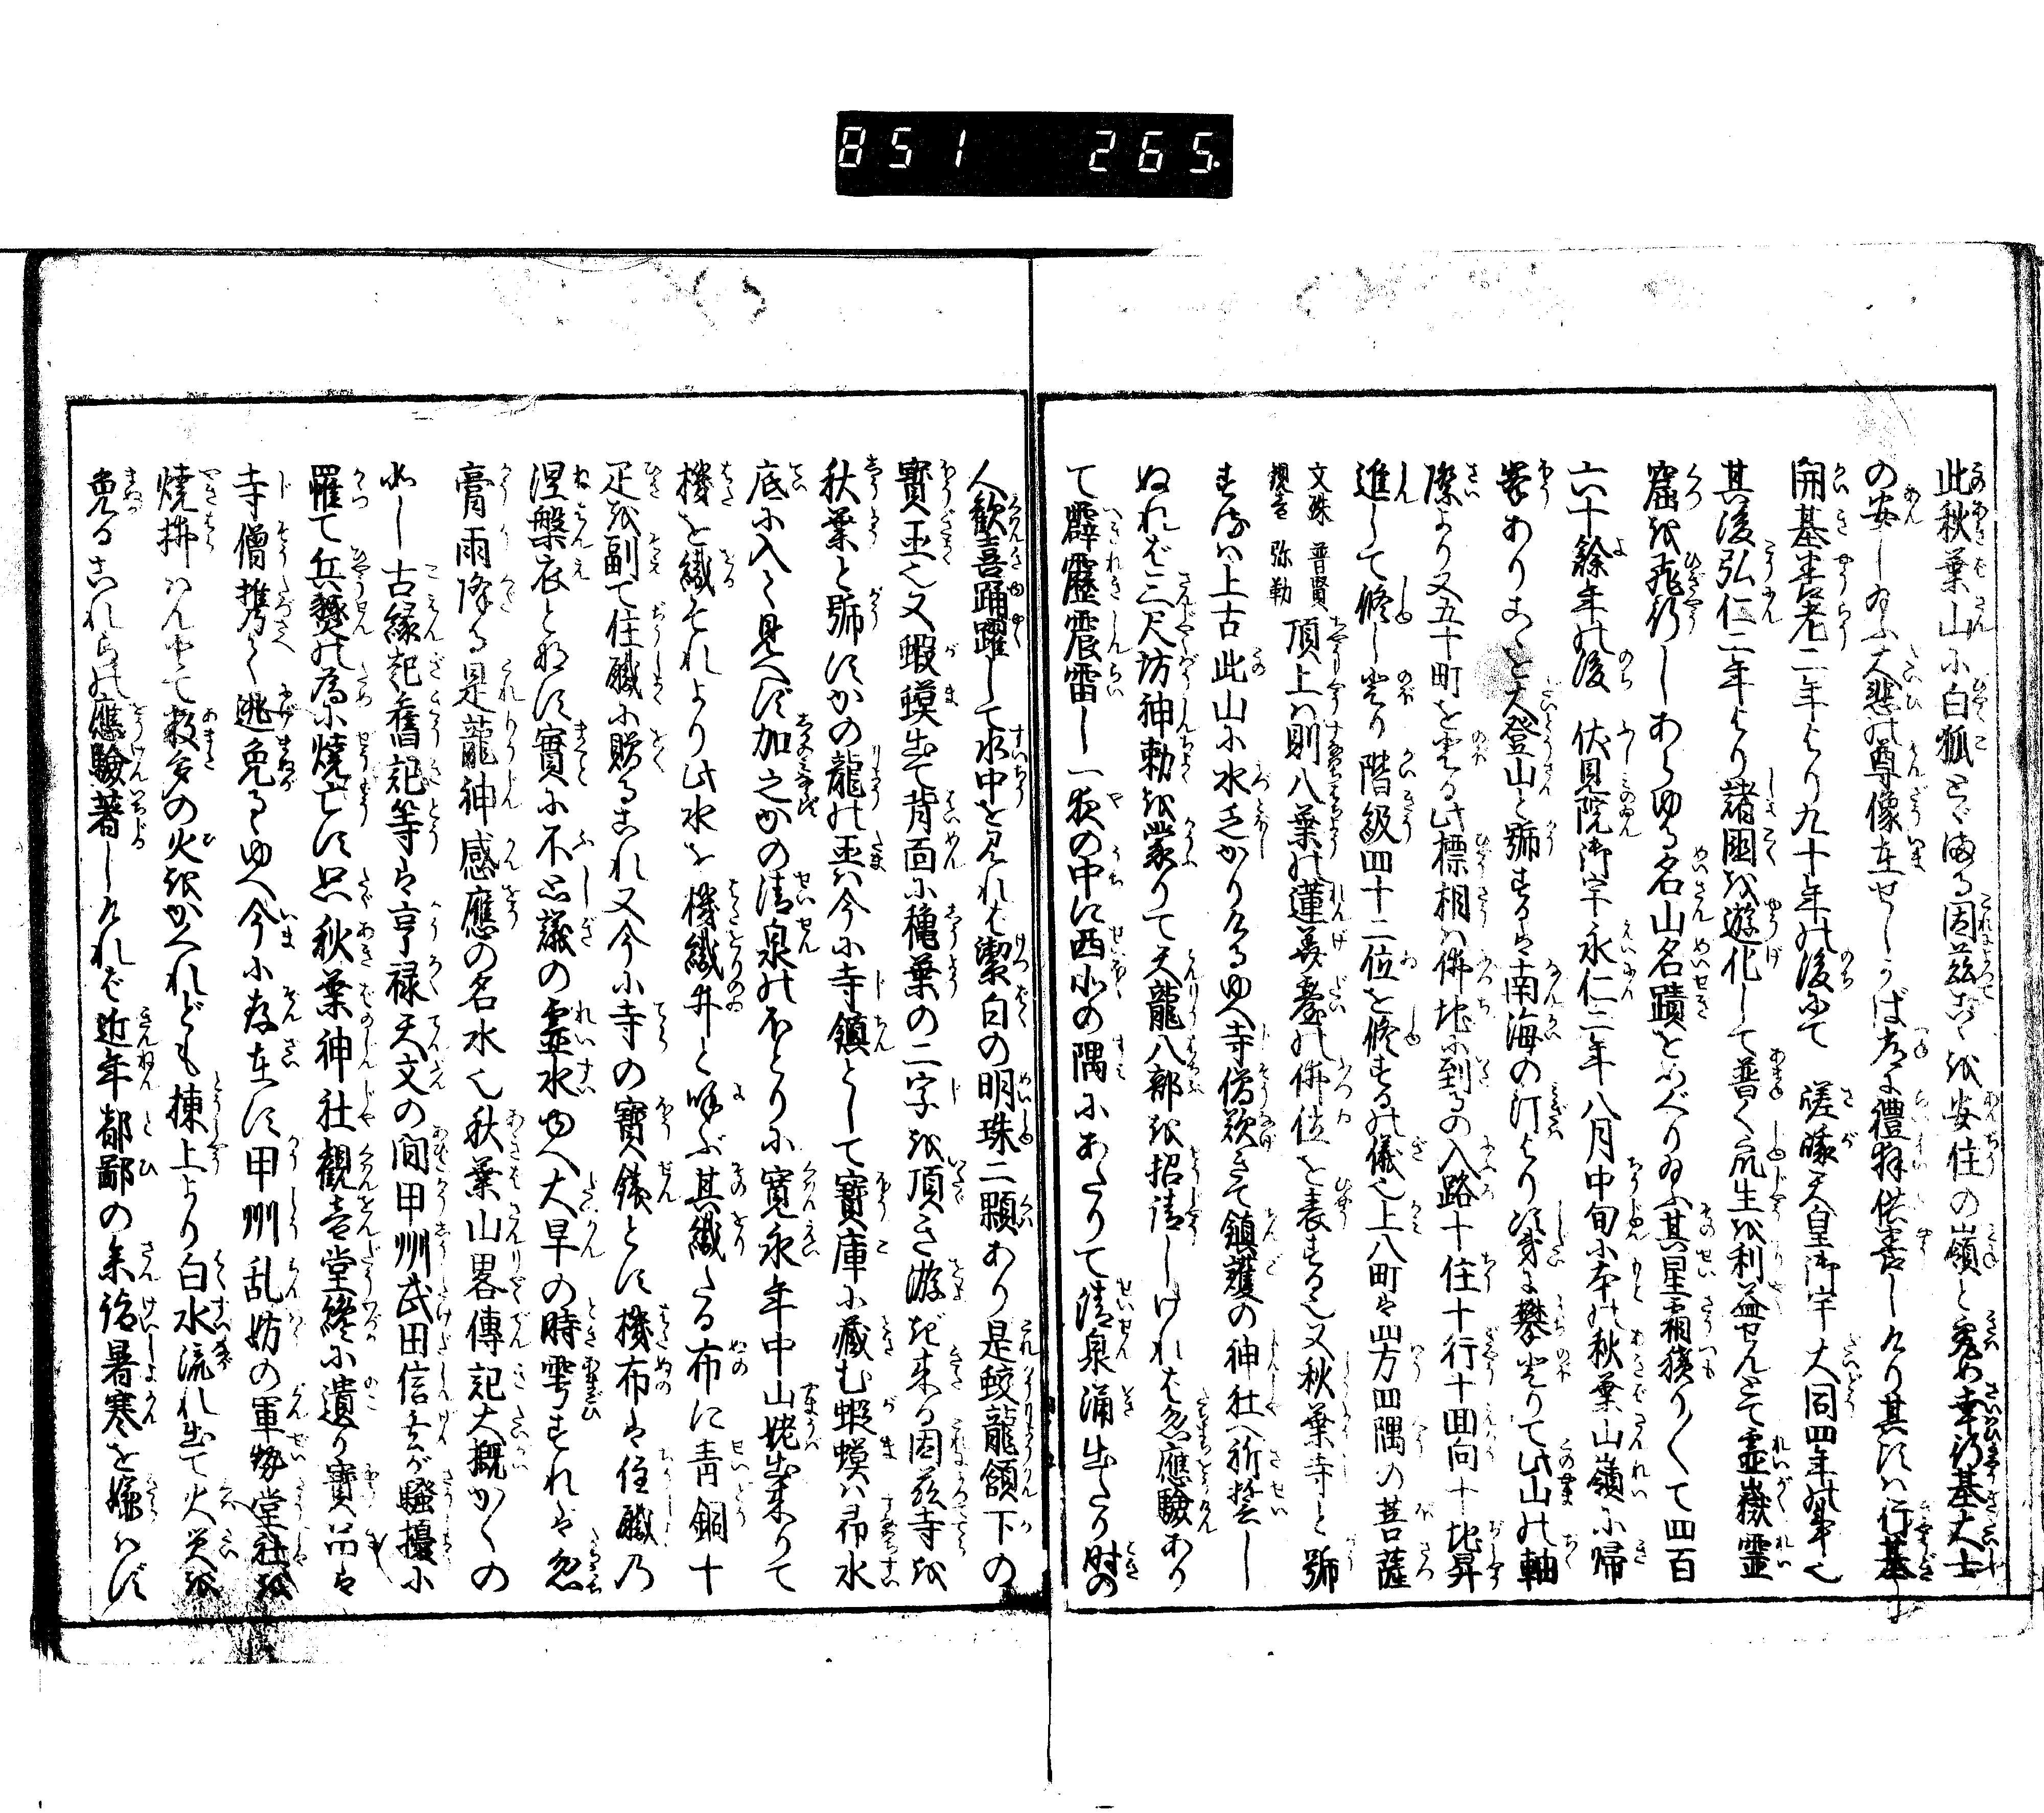 851 265.
此秋葉山に白狐とゞまる因茲こゝを安住の嶺と定め幸行基大士
の安し給ふ大悲の尊像在せしかば彦に禮拝供養しけり其は行基
開基養老二年より九十年の後にて 嵯峨天皇御宇大同四年の事也
其後弘仁二年より諸國を遊化して普く衆生を利益せんとて霊嶽霊
窟を飛行しあらゆる名山名蹟をしめ給ふ其星霜積り〳〵て四百
六十餘年の後 伏見院御宇永仁二年八月中旬に本の秋葉山嶺に帰
峯ありこゝを大登山と號するは南海の汀より次第に攀登りて此山の軸
際より又五十町を登る此標相は佛地に到るの入路十住十行十回向十地昇
進して修し登り階級四十二位を修するの儀也上八町は四方四隅の菩薩
文殊 普賢 観音 弥勒 頂上は則八葉の蓮華臺の佛位を表する也又秋葉寺と號
するは上古此山に水乏かりけるゆへ寺僧歎きて鎮護の神社へ祈誓し
ぬれば三尺坊神勅を蒙りて天龍八部を招請しければ忽應驗あり
て霹靂震雷し一夜の中に西北の隅にあたりて清泉涌出たり時の
人歓喜踊躍して水中を見れば潔白の明珠二顆あり是蛟龍頷下の
寳玉也又蝦蟆出て背面に穐葉の二字を頂き游ぎ来る因茲寺を
秋葉と號すかの龍の玉は今に寺鎮として寳庫に蔵む蝦蟆は帰水
底に入て見へず加之かの清泉のほとりに寛永年中山姥出来りて
機を織それより此水を機織井と呼ぶ其織たる布に青銅十
疋を副て住職に贈るこれ又今に寺の寳錢とす機布は住職乃
涅槃衣となす實に不思議の霊水ゆへ大旱の時雩すれば忽
膏雨降る是龍神感應の名水也秋葉山畧傳記大概かくの
如し古縁起舊記等は亨禄天文の間甲州武田信玄が騒擾に
罹て兵燹の為に焼亡す只秋葉神社観音堂纔に遺り寳品は
寺僧携て逃免るゆへ今に存在す甲州乱妨の軍勢堂社を
焼拂はんとて数多の火をかへれども棟上より白水流れ出て火災を
免るこれらの應驗著しければ近年都鄙の参詣暑寒を嫌はず